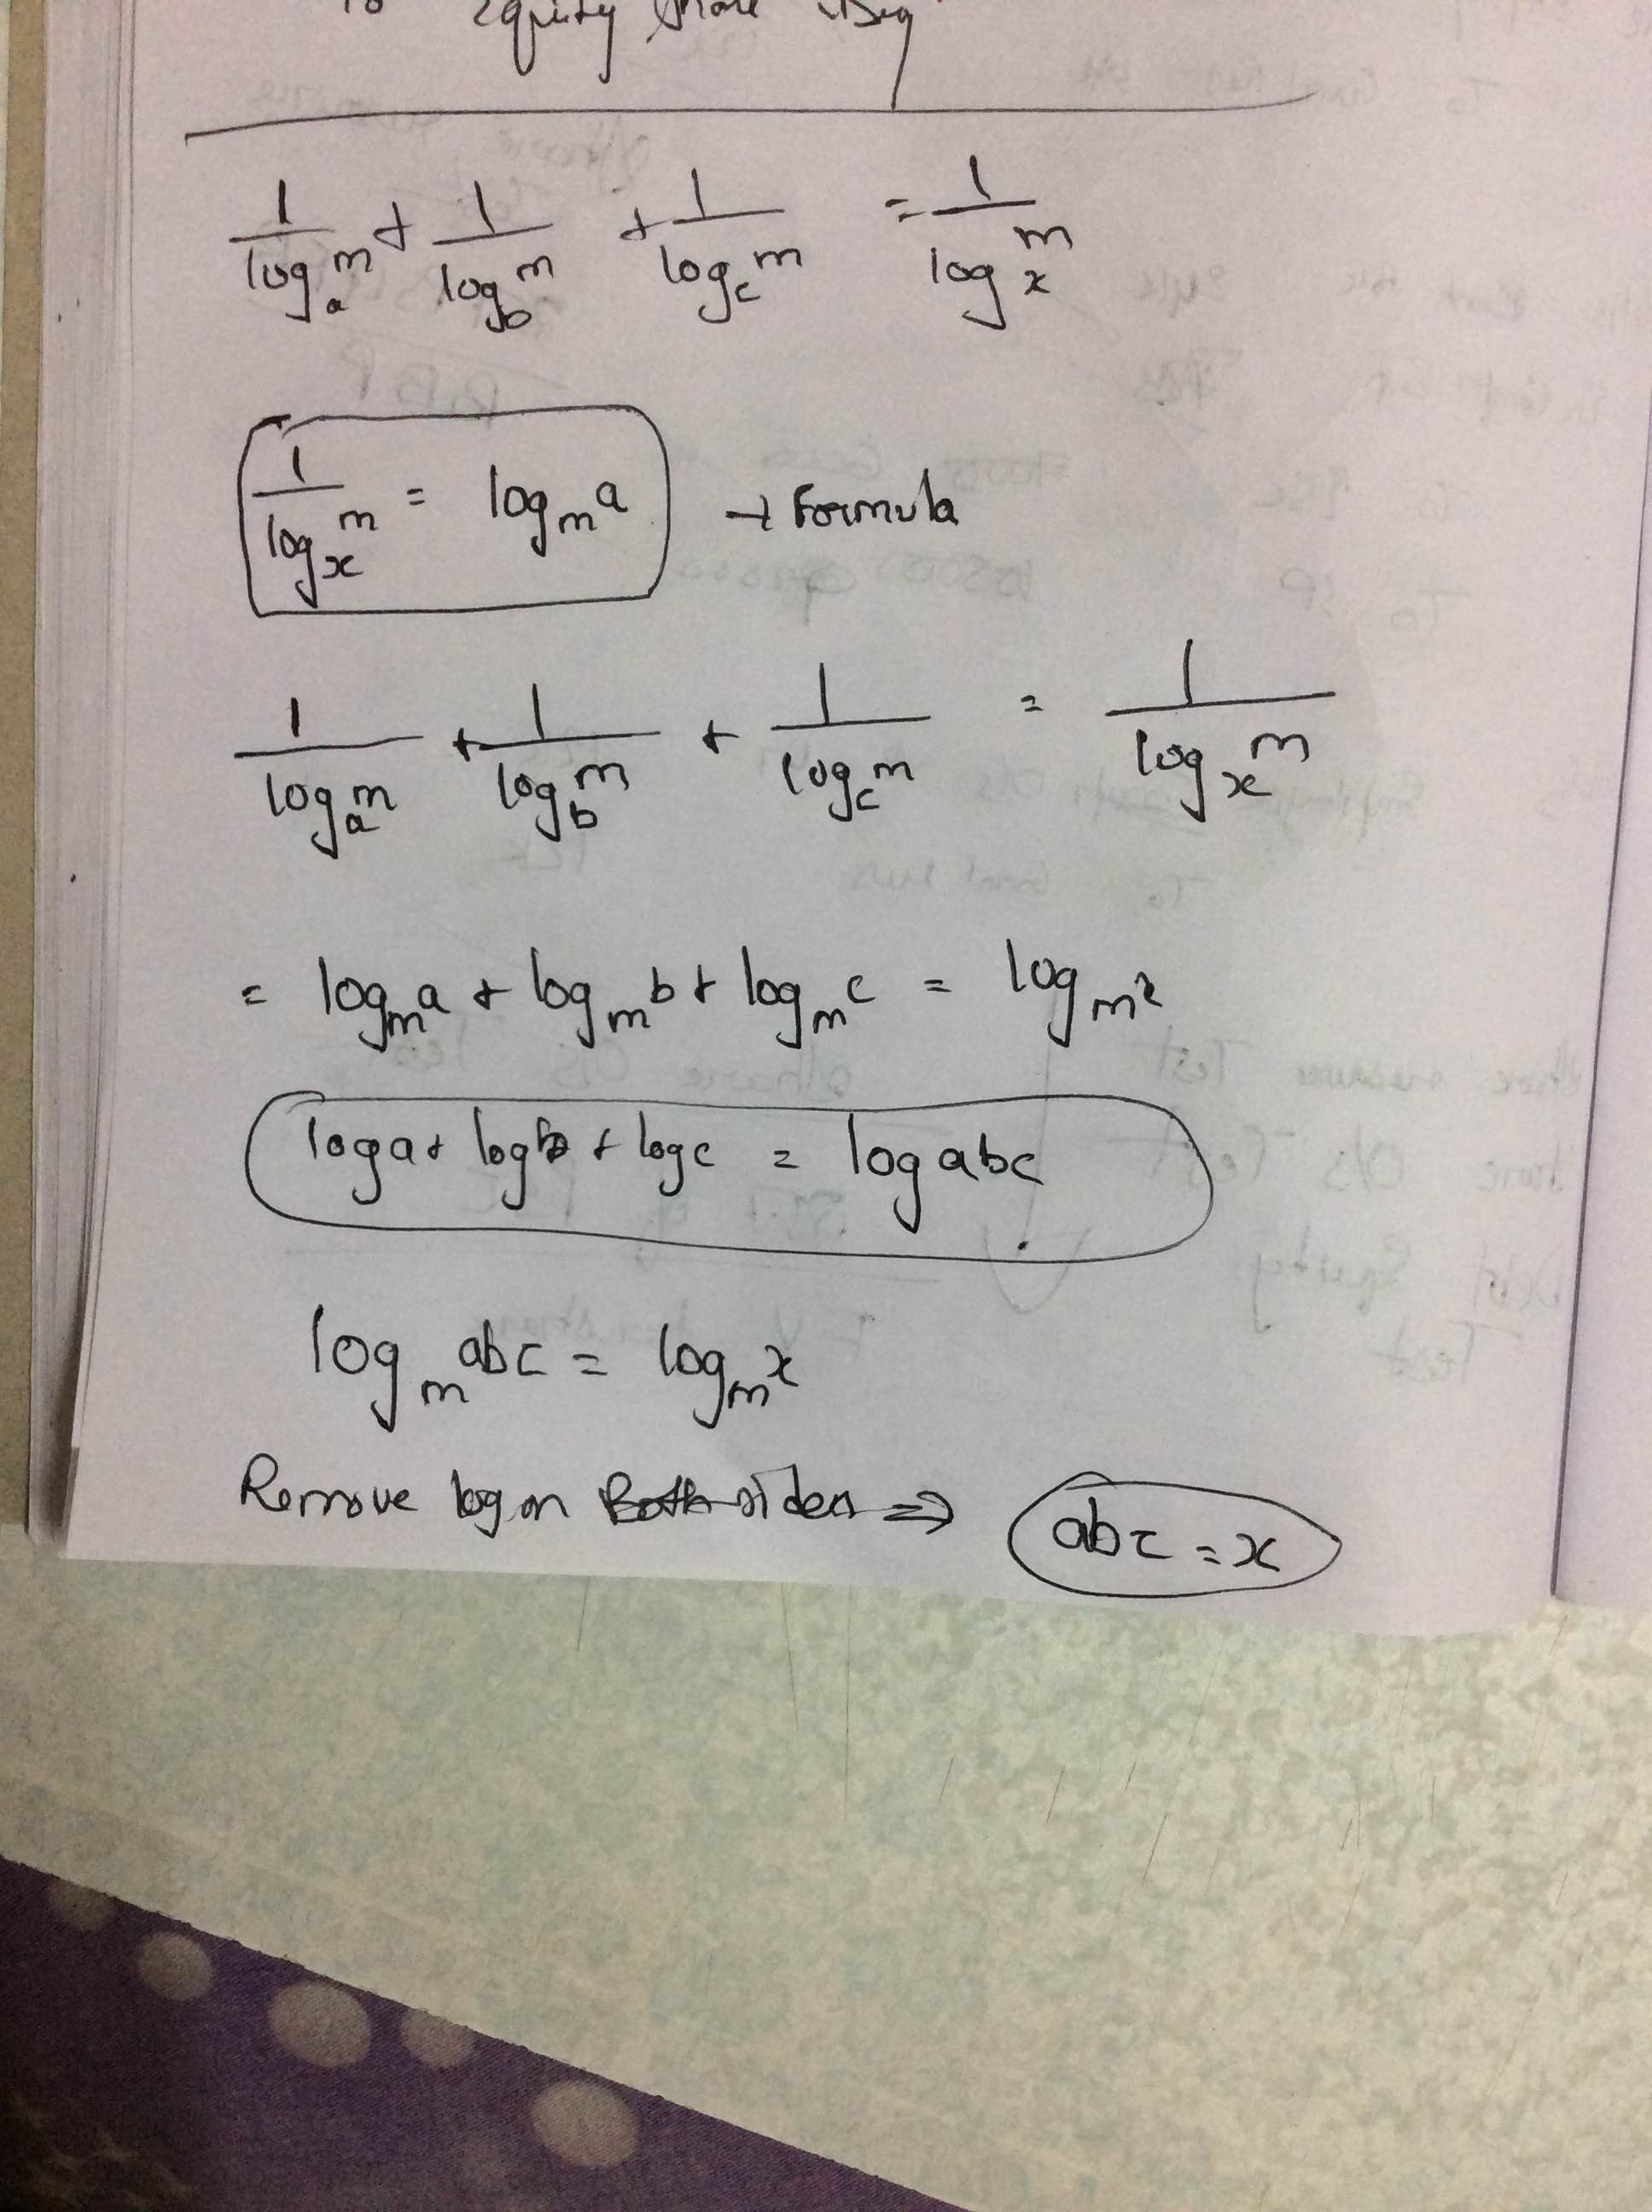 Equity
1/log_a m + 1/log_b m + 1/log_c m = 1/log_x m
1/log_x m = log_m a → Formula
1/log_a m + 1/log_b m + 1/log_c m = 1/log_x m
= log_m a + log_m b + log_m c = log_m x
log a + log b + log c = log abc
log_m abc = log_m x
Remove log on Both sides ⇒ abc = x